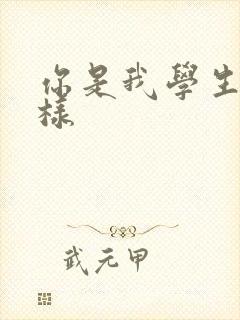 你是我學生
樣
武元甲